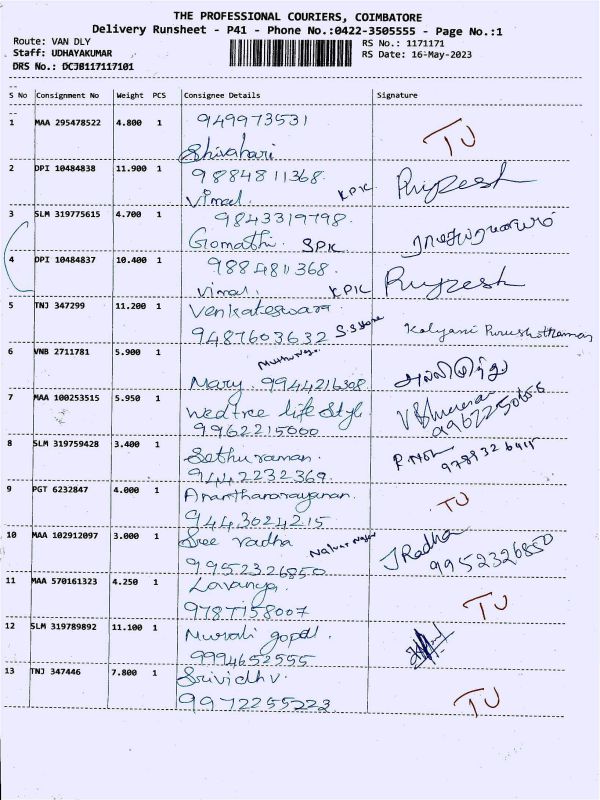 THE PROFESSIONAL COURIERS, COIMBATORE
Delivery Runsheet - P41 - Phone No.:0422-3505555 - Page No.:1
Route: VAN DLY RS No.: 1171171
Staff: UDHAYAKUMAR RS Date: 16-May-2023
DRS No.: DCJB117117101
S No Consignment No Weight PCS Consignee Details Signature
1 MAA 295478522 4.800 1 949973531
Shivahari TU
2 DPI 10484838 11.900 1 9884811368.
Vimal. KPK Rupesh
3 SLM 319775615 4.700 1 9843319798.
Gomathi. SPK
4 DPI 10484837 10.400 1 9884811368.
Vimal. KPK Rupesh
5 TNJ 347299 11.200 1 Venkateswara
9487603632 Kalyani Purushothaman
6 VNB 2711781 5.900 1
Mary. 9944216308
7 MAA 100253515 5.950 1 Wedtree life Style.
9962215000
8 SLM 319759428 3.400 1 Sethuraman.
9442232369.
9 PGT 6232847 4.000 1 Anantharayanan.
9443024215 TU
10 MAA 102912097 3.000 1 Sree radha J Radha
9952326850 9952326850
11 MAA 570161323 4.250 1 Lavanya.
9787158007 TU
12 SLM 319789892 11.100 1 Murali gopal.
9994652555
13 TNJ 347446 7.800 1 Srividhv.
9972255223 TU